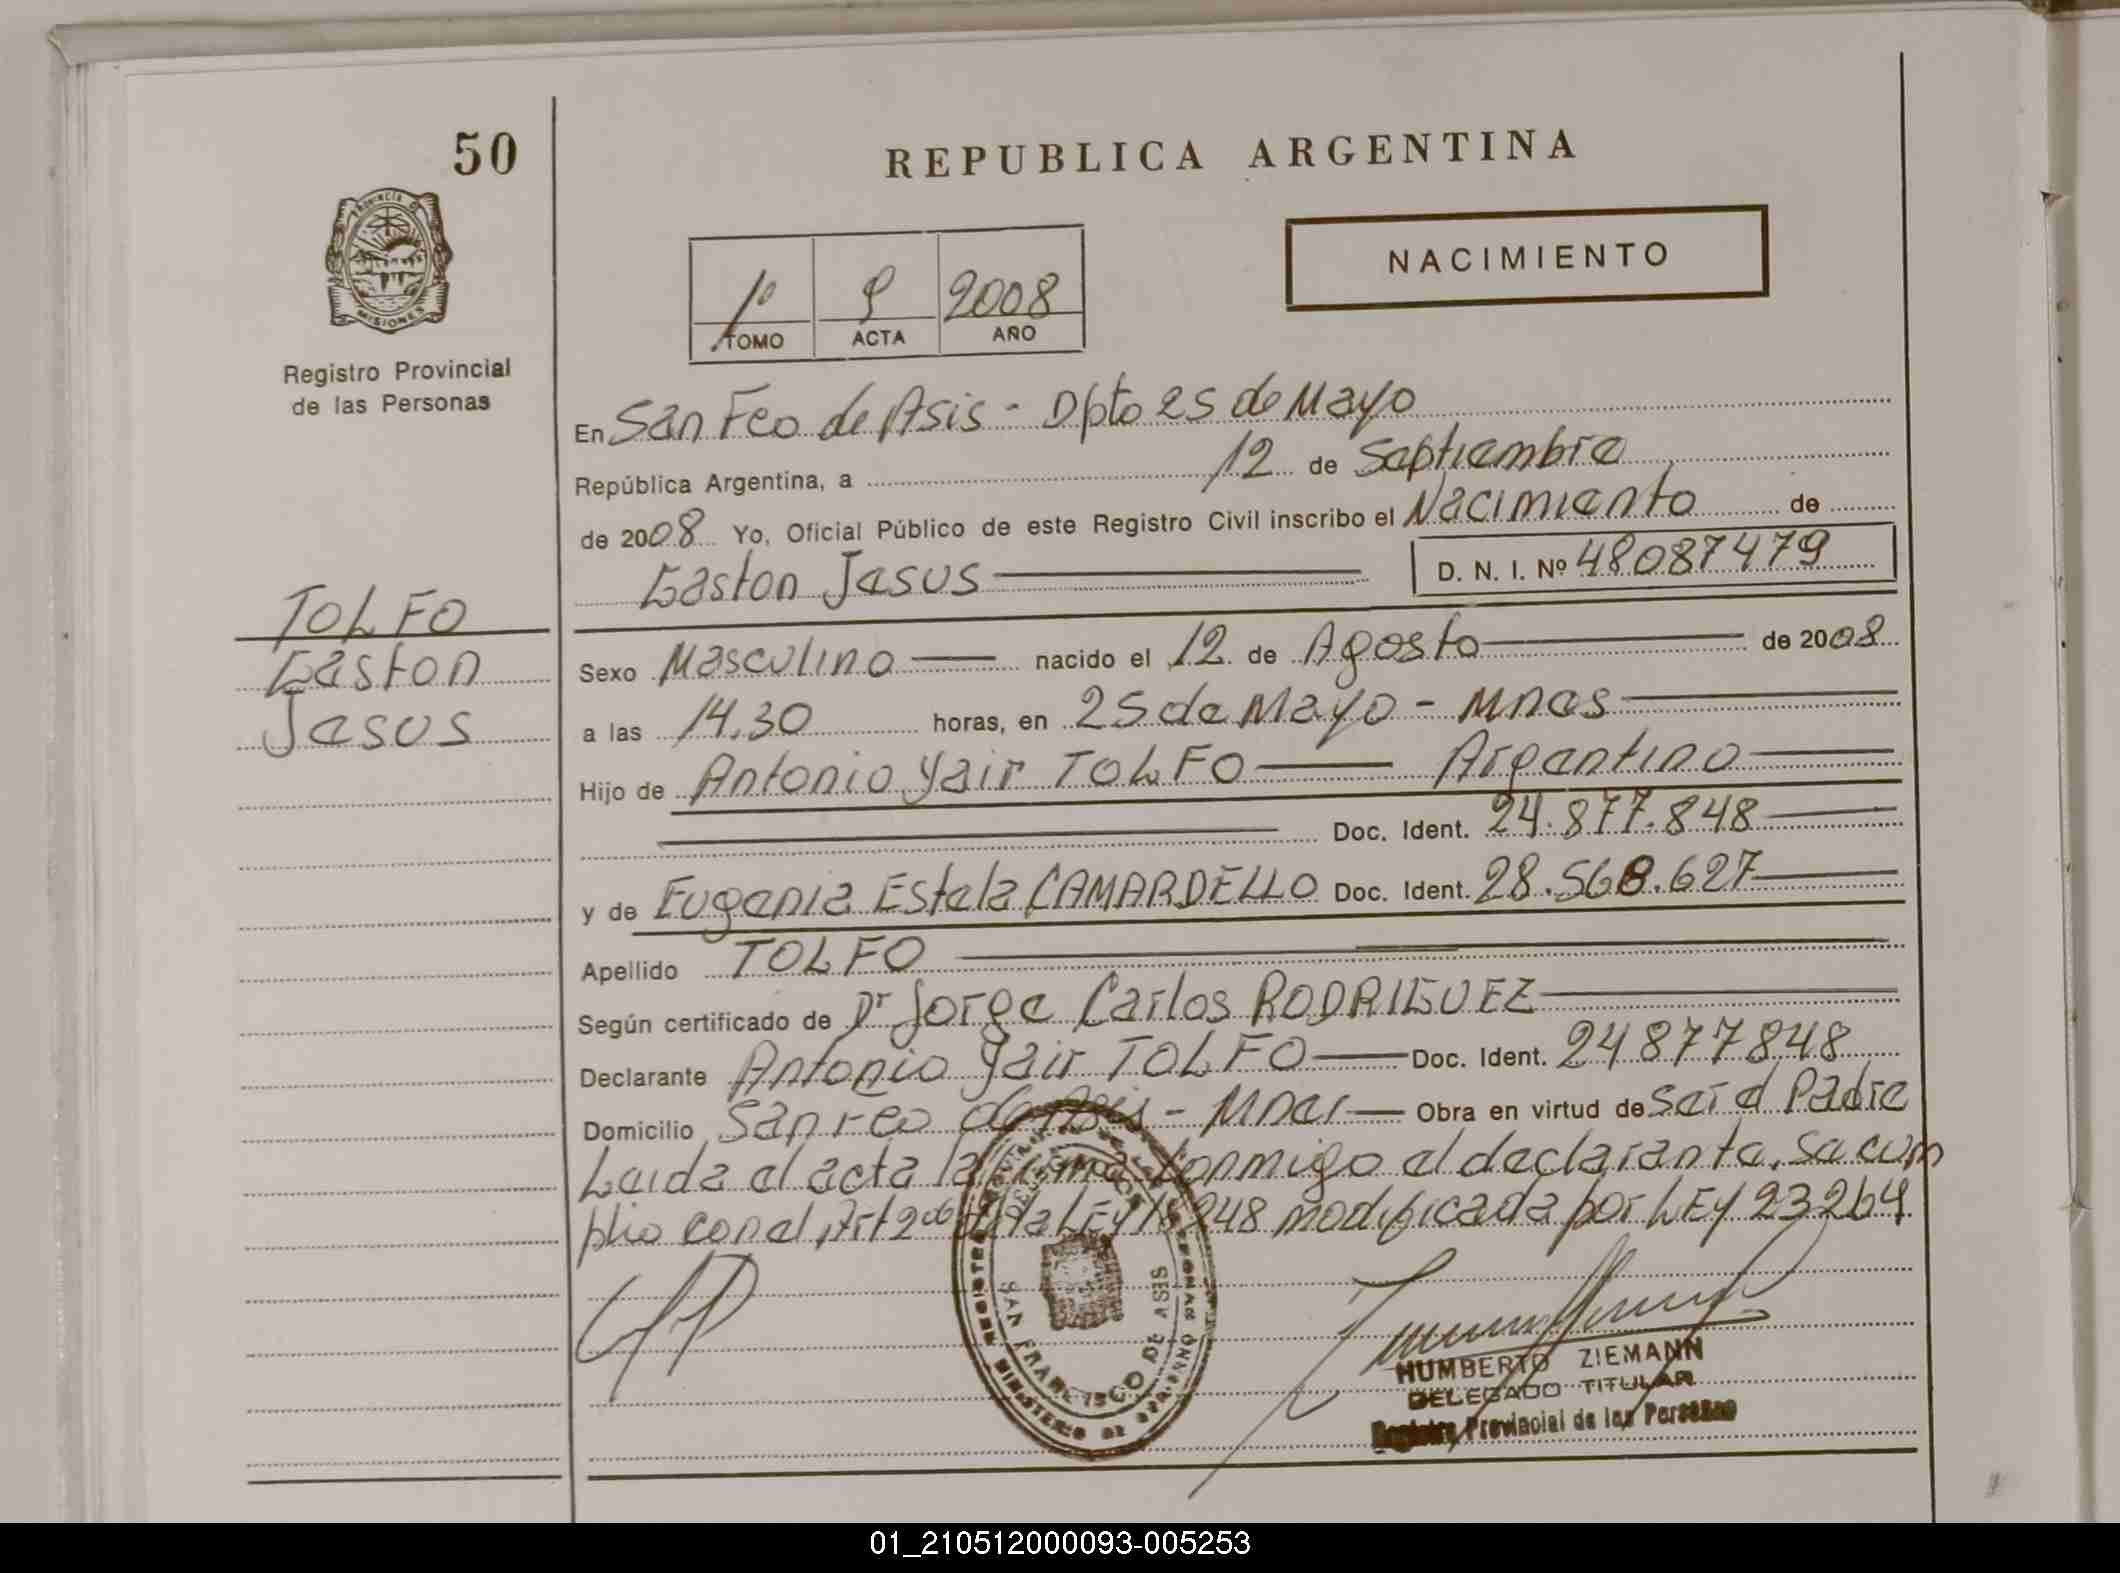 50
REPUBLICA ARGENTINA
NACIMIENTO
1º 9 2008
TOMO ACTA AÑO
MISIONES
Registro Provincial
de las Personas
En San Fco de Asis - Dpto 25 de Mayo
República Argentina, a 12 de Septiembre
de 2008 Yo, Oficial Público de este Registro Civil inscribo el Nacimiento de
Gaston Jesus D. N. I. Nº 48087479
TOLFO
Gaston
Jesus
Sexo Masculino nacido el 12 de Agosto de 2008
a las 14.30 horas, en 25 de Mayo - Mnes
Hijo de Antonio Yair TOLFO Argentino
Doc. Ident. 24.877.848
y de Eugenia Estela CAMARDELLO Doc. Ident. 28.568.627
Apellido TOLFO
Según certificado de Dr Jorge Carlos RODRIGUEZ
Declarante Antonio Yair TOLFO Doc. Ident. 24877848
Domicilio San Fco de Asis - Mnes Obra en virtud de ser el Padre
Leida el acta la firma conmigo el declarante. Se cum
plio con el Art 2 de la LEY 18248 modificada por LEY 23264
SAN FRANCISCO DE ASIS
HUMBERTO ZIEMANN
DELEGADO TITULAR
Registro Provincial de las Personas
01_210512000093-005253